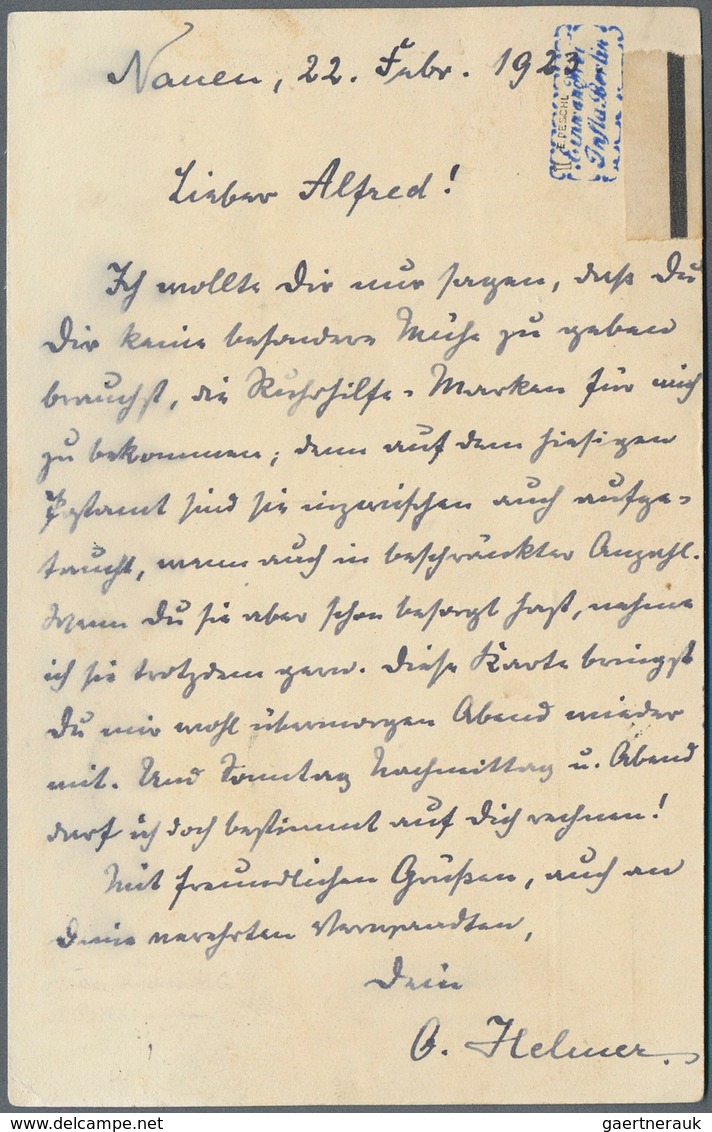 Nauen, 22. Febr. 1923
E. PESCHL
Infla Berlin
Lieber Alfred!
Ich wollte Dir nur sagen, daß Du
Dir keine besondere Mühe zu geben
brauchst, die Ruhrhilfe-Marken für mich
zu bekommen; denn auf dem hiesigen
Postamt sind sie inzwischen auch aufge-
taucht, wenn auch in beschränkter Anzahl.
Wenn Du sie aber schon besorgt hast, nehme
ich sie trotzdem gern. Diese Karte bringst
Du mir wohl übermorgen Abend wieder
mit. Und Sonntag Nachmittag u. Abend
darf ich doch bestimmt auf Dich rechnen!
Mit freundlichen Grüßen, auch an
Deine verehrten Verwandten,
Dein
O. Helmer.
gaertnerauk